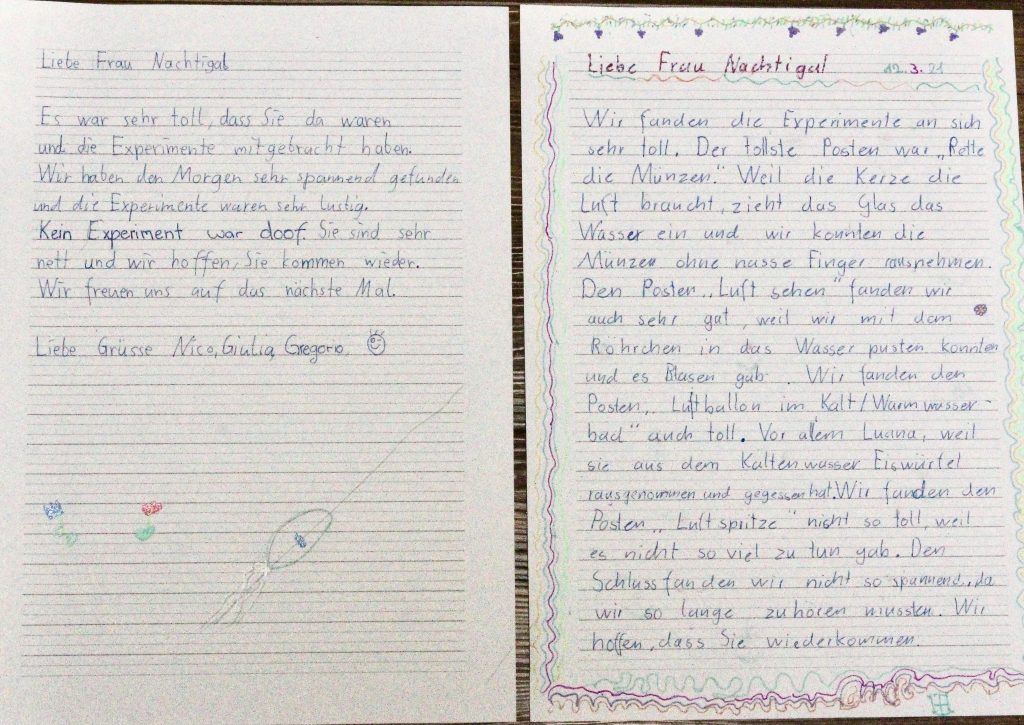 Liebe Frau Nachtigal
Es war sehr toll, dass Sie da waren
und die Experimente mitgebracht haben.
Wir haben den Morgen sehr spannend gefunden
und die Experimente waren sehr lustig.
Kein Experiment war doof. Sie sind sehr
nett und wir hoffen, Sie kommen wieder.
Wir freuen uns auf das nächste Mal.
Liebe Grüsse Nico, Giulia, Gregorio.
Liebe Frau Nachtigal 12.3.21
Wir fanden die Experimente an sich
sehr toll. Der tollste Posten war „Rette
die Münzen." Weil die Kerze die
Luft braucht, zieht das Glas das
Wasser ein und wir konnten die
Münzen ohne nasse Finger rausnehmen.
Den Posten „Luft sehen" fanden wir
auch sehr gut, weil wir mit dem
Röhrchen in das Wasser pusten konnten
und es Blasen gab. Wir fanden den
Posten „Luftballon im Kalt/Warmwasser-
bad" auch toll. Vor allem Luana, weil
sie aus dem Kaltenwasser Eiswürfel
rausgenommen und gegessen hat. Wir fanden den
Posten „Luftspritze" nicht so toll, weil
es nicht so viel zu tun gab. Den
Schluss fanden wir nicht so spannend, da
wir so lange zuhören mussten. Wir
hoffen, dass Sie wiederkommen.